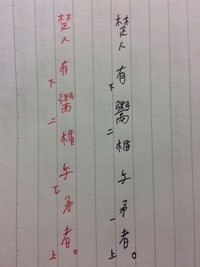 楚人有下鬻二楯与矛一者上。
楚人有下鬻二楯与レ矛者上。